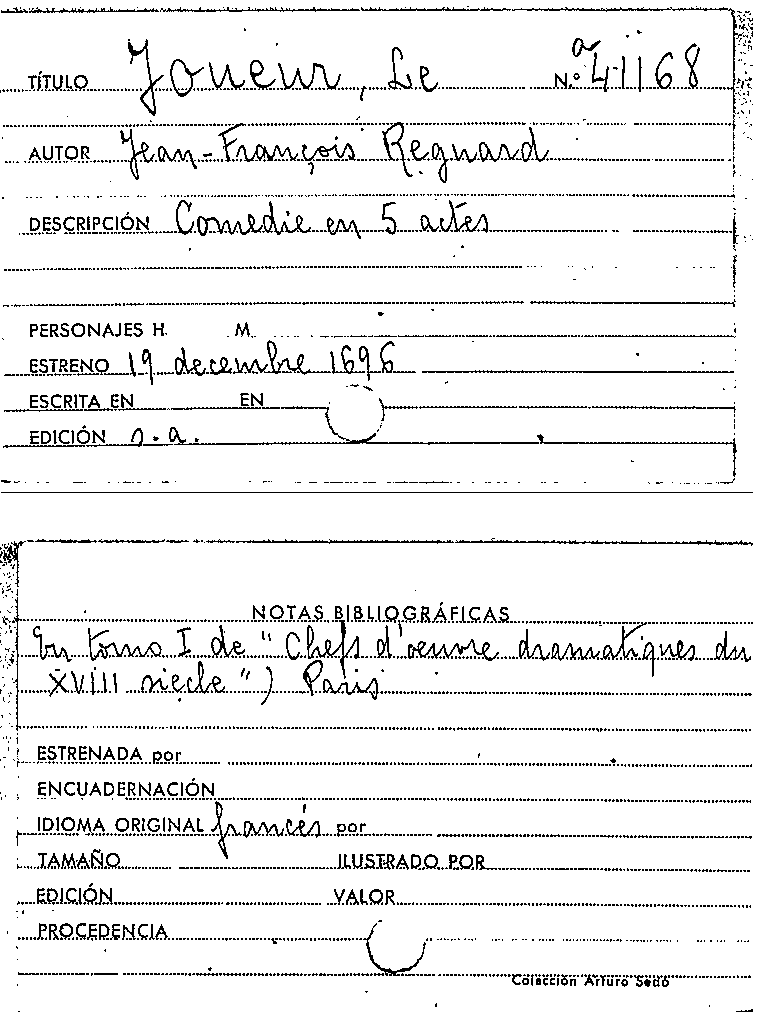 TÍTULO Joueur, Le N.º a 41168
AUTOR Jean-François Regnard
DESCRIPCIÓN Comedie en 5 actes
PERSONAJES H. M.
ESTRENO 19 decembre 1696
ESCRITA EN EN
EDICIÓN s.a.
NOTAS BIBLIOGRÁFICAS
En tomo I de "Chefs d'oeuvre dramatiques du
XVIII siecle") Paris
ESTRENADA por
ENCUADERNACIÓN
IDIOMA ORIGINAL francés por
TAMAÑO ILUSTRADO POR
EDICIÓN VALOR
PROCEDENCIA
Colección Arturo Sedó